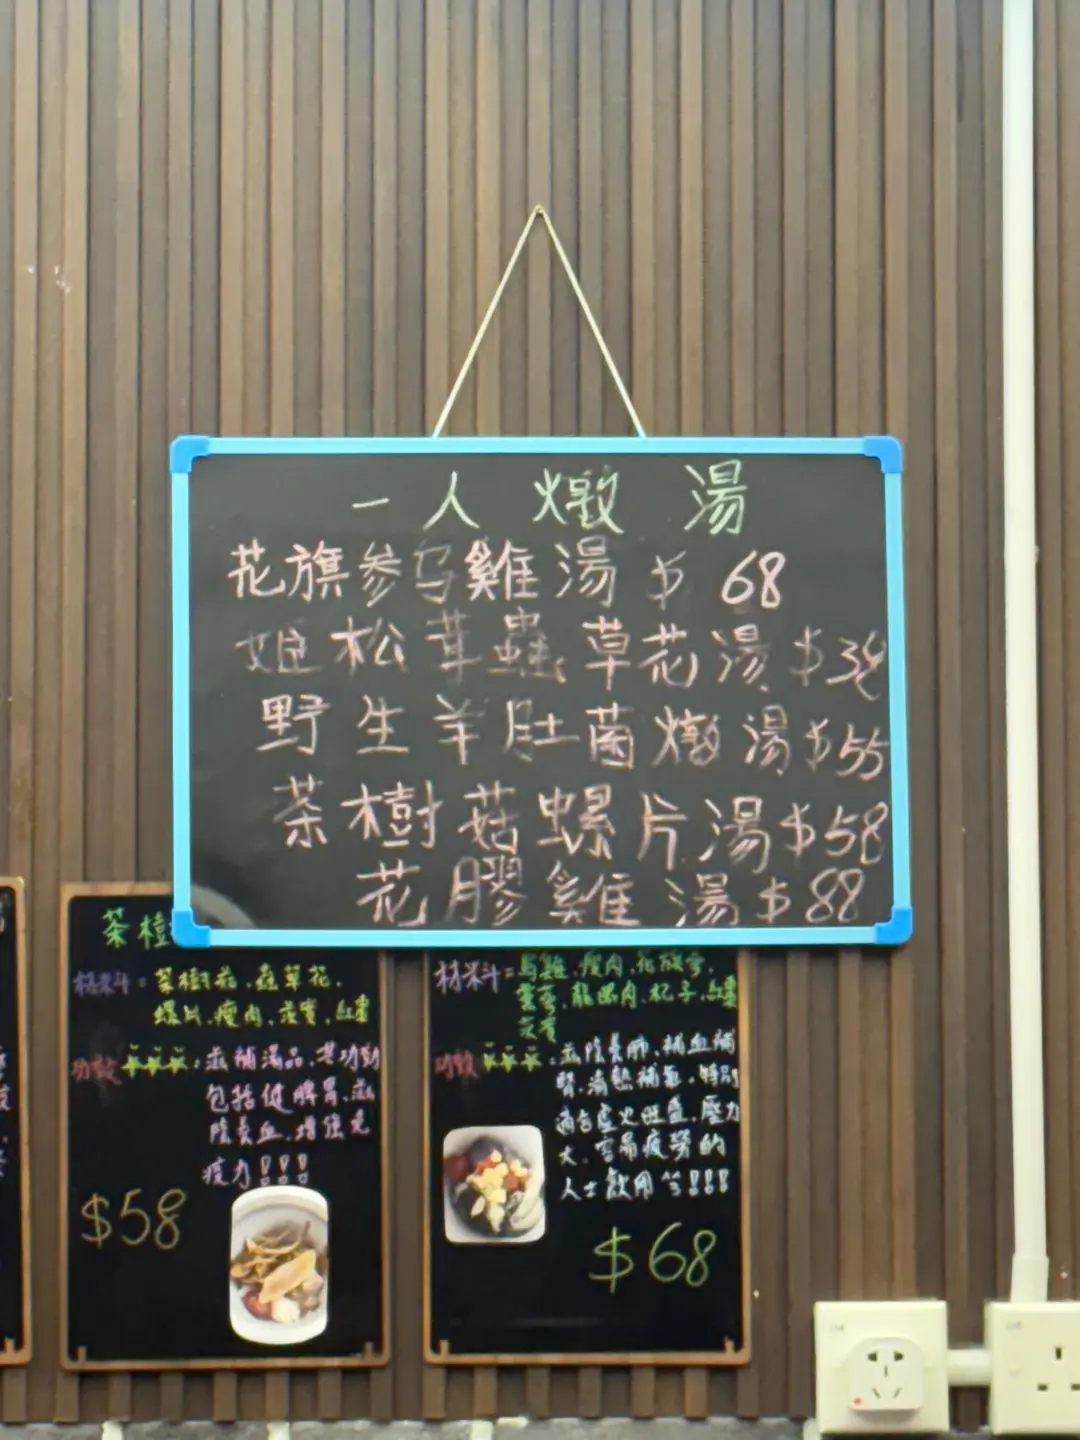 一人燉湯
花旗参乌雞湯 $ 68
姬松茸蟲草花湯 $38
野生羊肚菌燉湯 $55
茶樹菇螺片湯 $58
花膠雞湯 $88
茶樹
材料：茶樹菇、蟲草花、
螺片、瘦肉、茨實、紅棗
功效：滋補湯品、其功効
包括健脾胃、滋
陰養血、增強免
疫力!!!
$58
材料：烏雞、瘦肉、花旗參、
龍眼肉、杞子、紅棗
茨實
功效：滋陰養肺、補血補
腎、清熱補氣、特別
適合虛火旺盛、壓力
大、容易疲勞的
人士飲用等!!!
$68